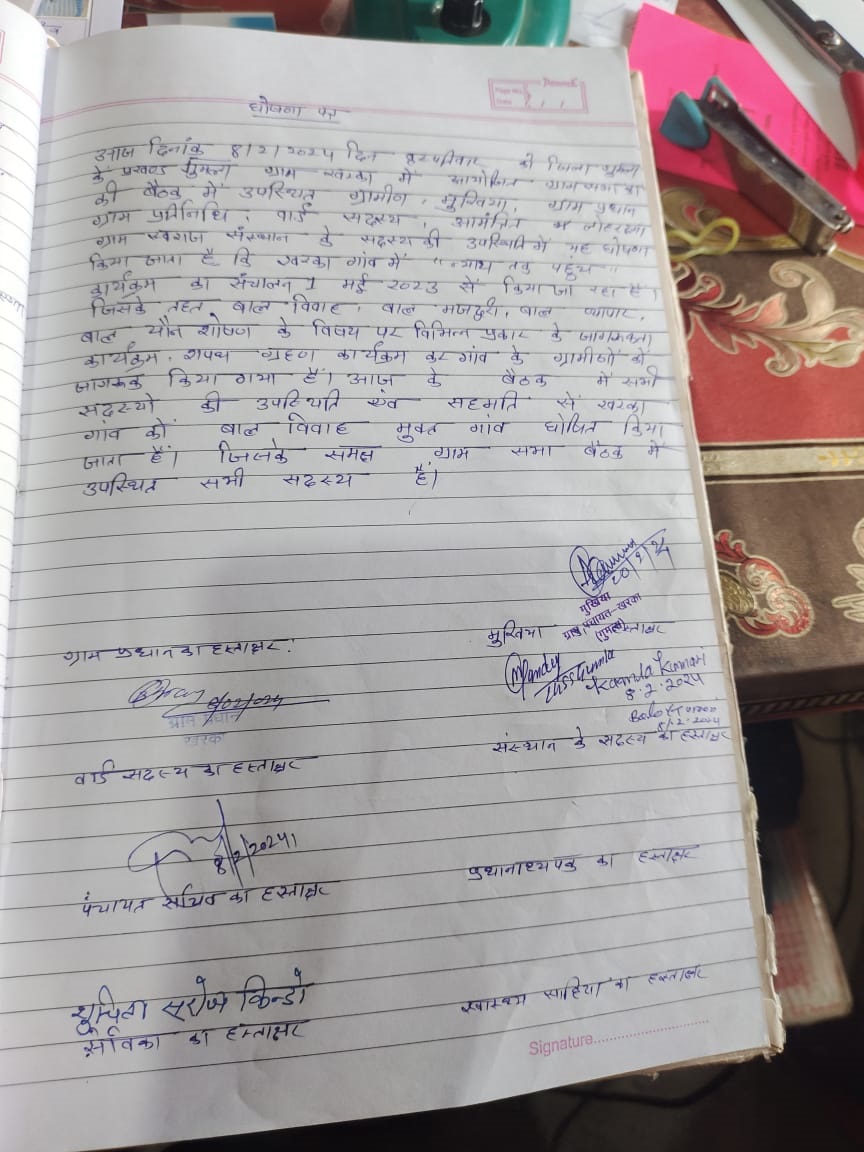 घोषणा पत्र
Page No.
Date
आज दिनांक 8/2/2024 दिन को जिला गुमला
के प्रखण्ड गुमला ग्राम खरका में आयोजित ग्राम सभा
की बैठक में उपस्थित ग्रामीण, मुखिया, ग्राम प्रधान
ग्राम प्रतिनिधि, वार्ड सदस्य, आमंत्रित लोहरदगा
ग्राम स्वराज संस्थान के सदस्य की उपस्थिति में यह घोषणा
किया जाता है कि खरका गांव में "न्याय तक पहुंच"
कार्यक्रम का संचालन 1 मई 2023 से किया जा रहा है।
जिसके तहत बाल विवाह, बाल मजदूरी, बाल व्यापार,
बाल यौन शोषण के विषय पर विभिन्न प्रकार के जागरूकता
कार्यक्रम, शपथ ग्रहण कार्यक्रम कर गांव के ग्रामीणों को
जागरूक किया गया है। आज के बैठक में सभी
सदस्यो की उपस्थिति एंव सहमति से खरका
गांव को बाल विवाह मुक्त गांव घोषित किया
जाता है। जिसके समक्ष ग्राम सभा बैठक में
उपस्थित सभी सदस्य है।
20/2/24
मुखिया
ग्राम पंचायत-खरका
(गुमला)
ग्राम प्रधान का हस्ताक्षर.
मुखिया हस्ताक्षर
8/02/024
ग्राम प्रधान
खरका
Kamla Kumari
8.2.2024
8/2.2024
संस्थान के सदस्य का हस्ताक्षर
वार्ड सदस्य का हस्ताक्षर
8/2/2024
प्रधानाध्यापक का हस्ताक्षर
पंचायत सचिव का हस्ताक्षर
सरोज किन्डो
सेविका का हस्ताक्षर
स्वास्थ्य साहिया का हस्ताक्षर
Signature